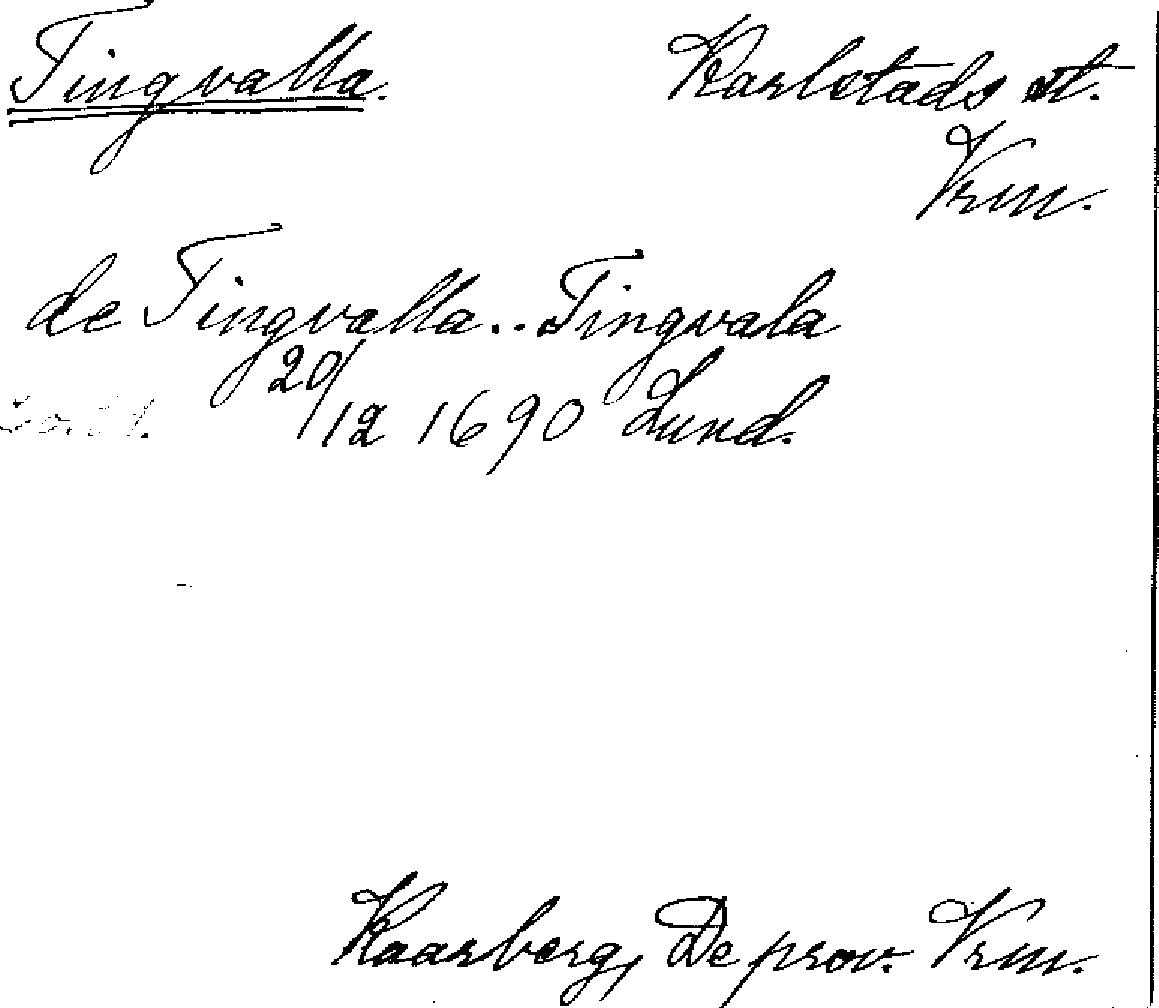 Tingvalla. Karlstads st.
Vrm.
de Tingvalla.. Tingvala
20/12 1690 Lund.
Kaarberg, De prov. Vrm.